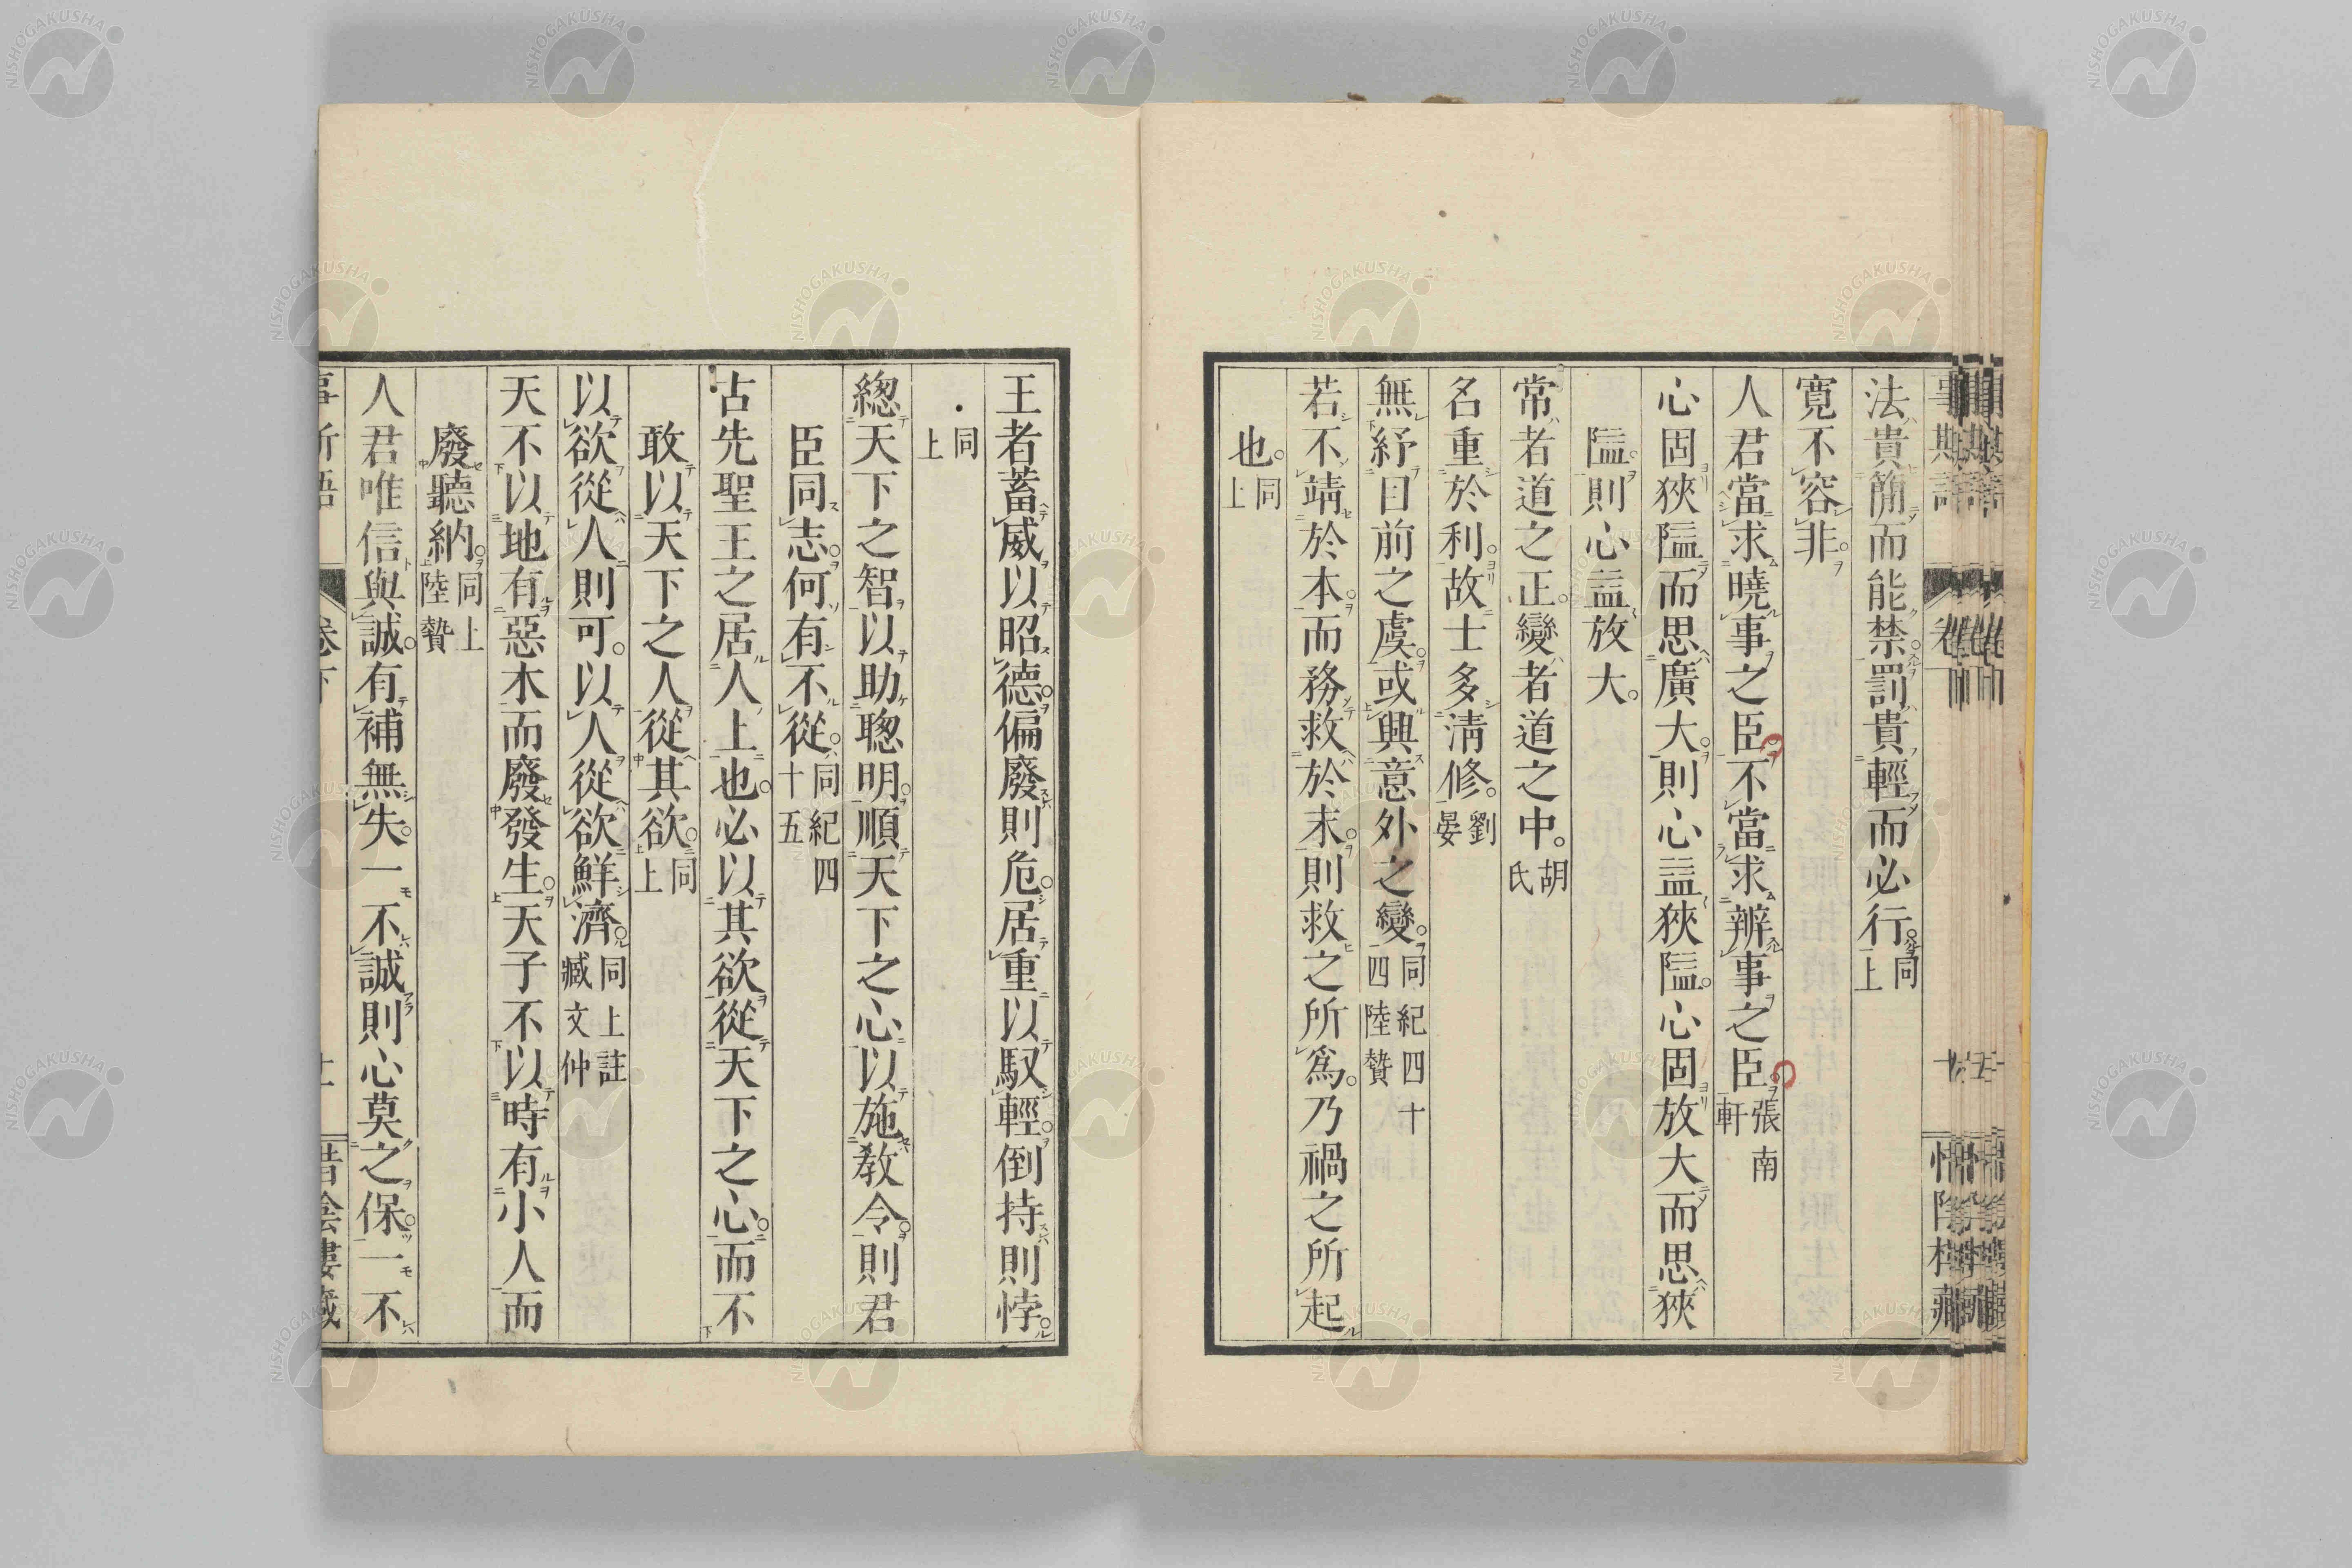 法貴簡而能禁。罰貴輕而必行。同上
寛不容非。
人君當求曉事之臣。不當求辨事之臣。張南軒
心固狹隘而思廣大。則心益狹隘。心固放大而思狹
隘。則心益放大。
常者道之正。變者道之中。胡氏
名重於利。故士多淸修。劉晏
無紓目前之虞。或興意外之變。同紀四十四陸贄
若不靖於本。而務救於末。則救之所爲。乃禍之所起
也。同上
王者蓄威以昭德。偏廢則危。居重以馭輕。倒持則悖。
同上
總天下之智以助聰明。順天下之心以施敎令。則君
臣同志。何有不從。同紀四十五
古先聖王之居人上也。必以其欲從天下之心。而不
敢以天下之人從其欲。同上
以欲從人則可。以人從欲鮮濟。同上註臧文仲
天不以地有惡木而廢發生。天子不以時有小人而
廢聽納。同上陸贄
人君唯信與誠。有補無失。一不誠則心莫之保。一不
卷下
惜陰樓藏
NISHOGAKUSHA